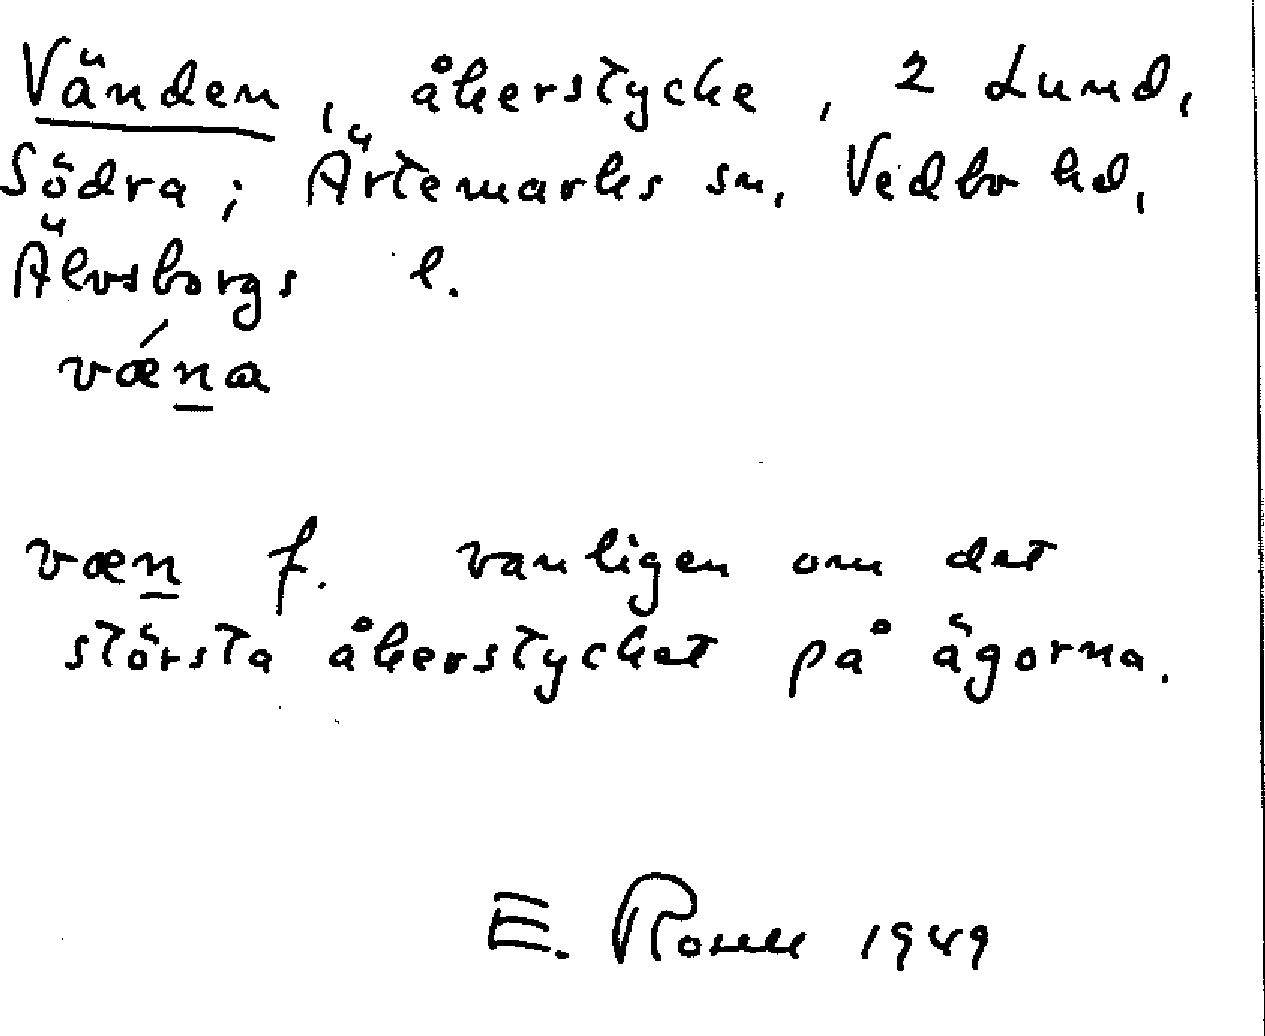 Vänden, åkerstycke, 2 Lund,
Södra; Ärtemarks sn, Vedbo hd,
Älvsborgs l.
vǽna
væn f. vanligen om det
största åkerstycket på ägorna.
E. Rosell 1949